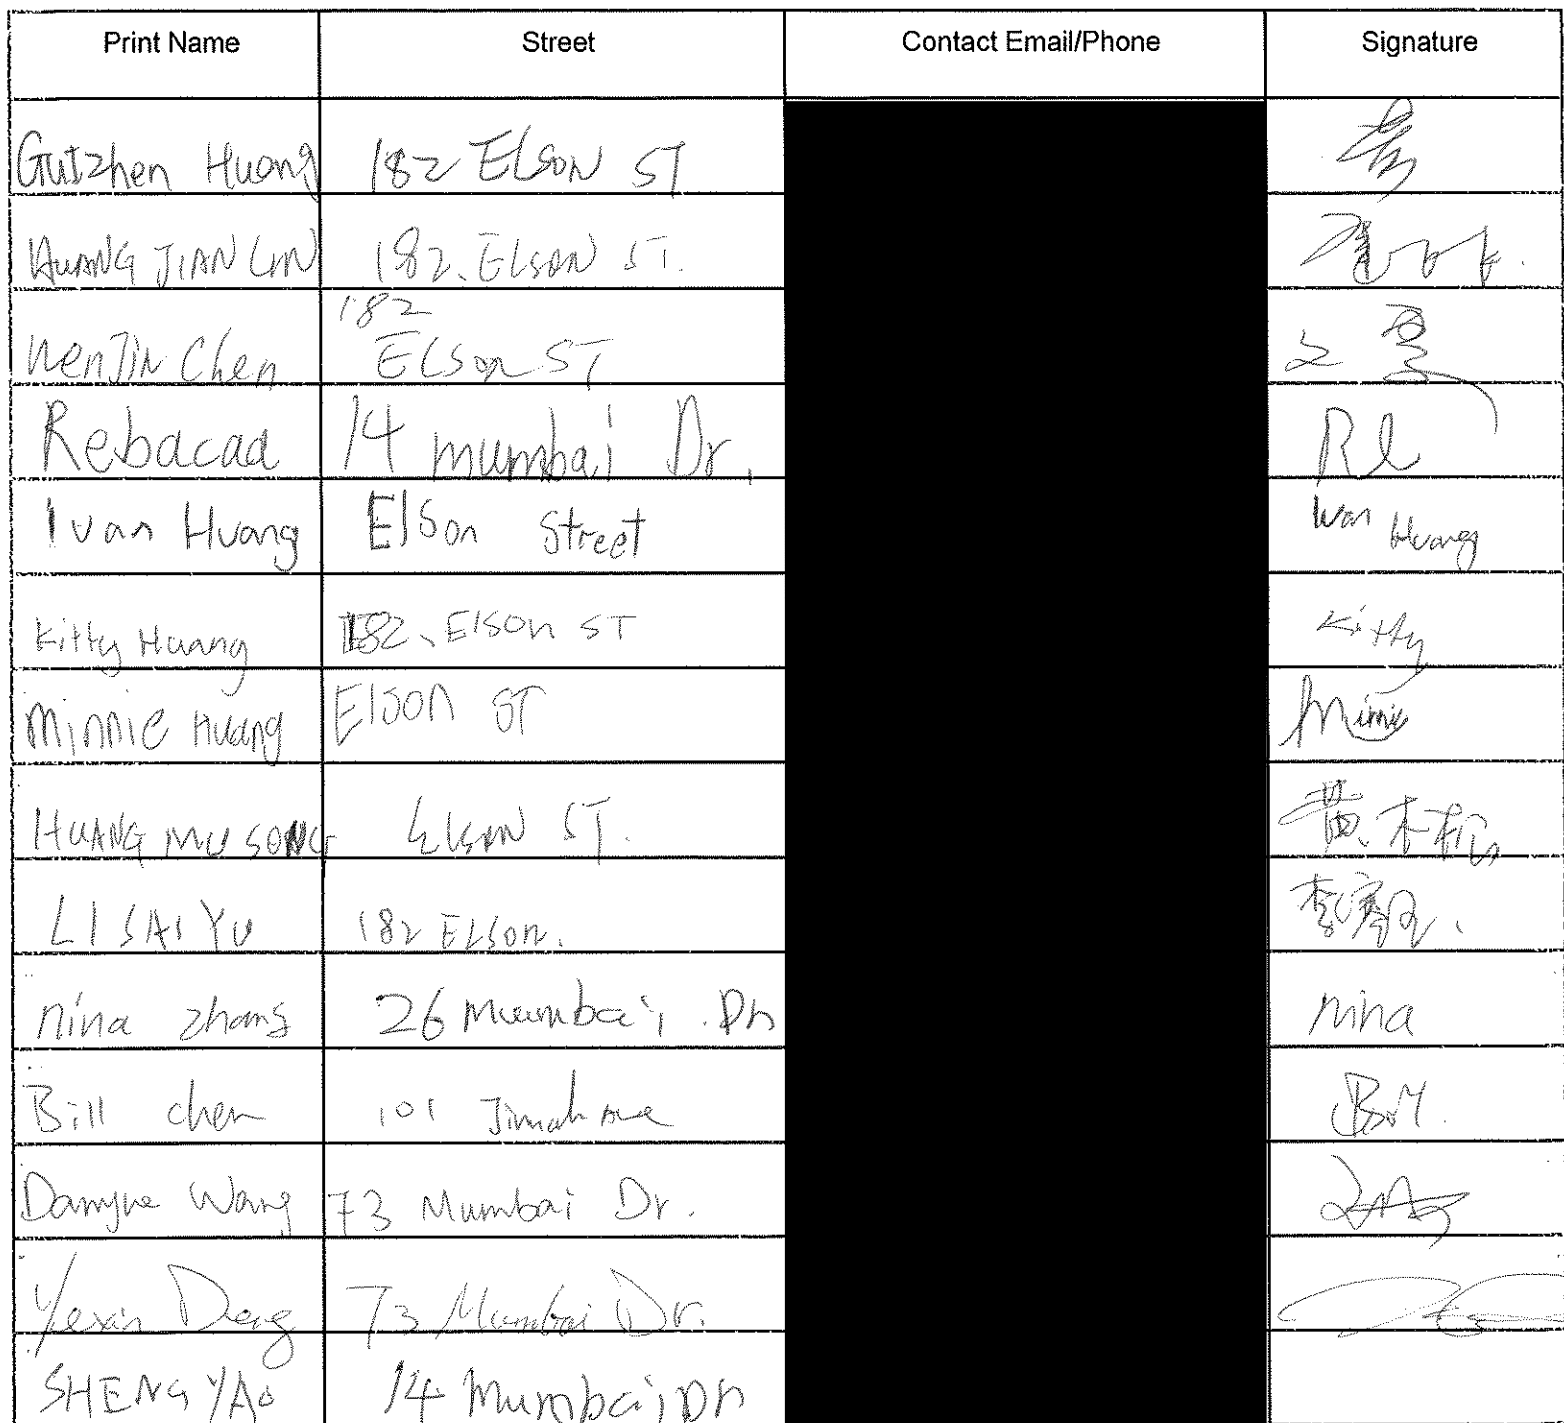 Print Name Street Contact Email/Phone Signature
Guizhen Huang 182 ELSON ST
HUANG JIAN LIN 182. ELSON ST.
182
WenJin Chen ELSON ST 文
Rebacaa 14 mumbai Dr.
Ivan Huang Elson Street Ivan Huang
Kitty Huang 182、Elson ST Kitty
Minnie Huang Elson ST Minnie
HUANG MU SONG ELSON ST. 黄木松
LI SAI YU 182 ELSON. 李赛
nina zhang 26 Mumbai . Dr nina
Bill chen 101 Bill
Wang 73 Mumbai Dr.
Yexin Deng 73 Mumbai Dr.
SHENG YAO 14 Mumbai Dr